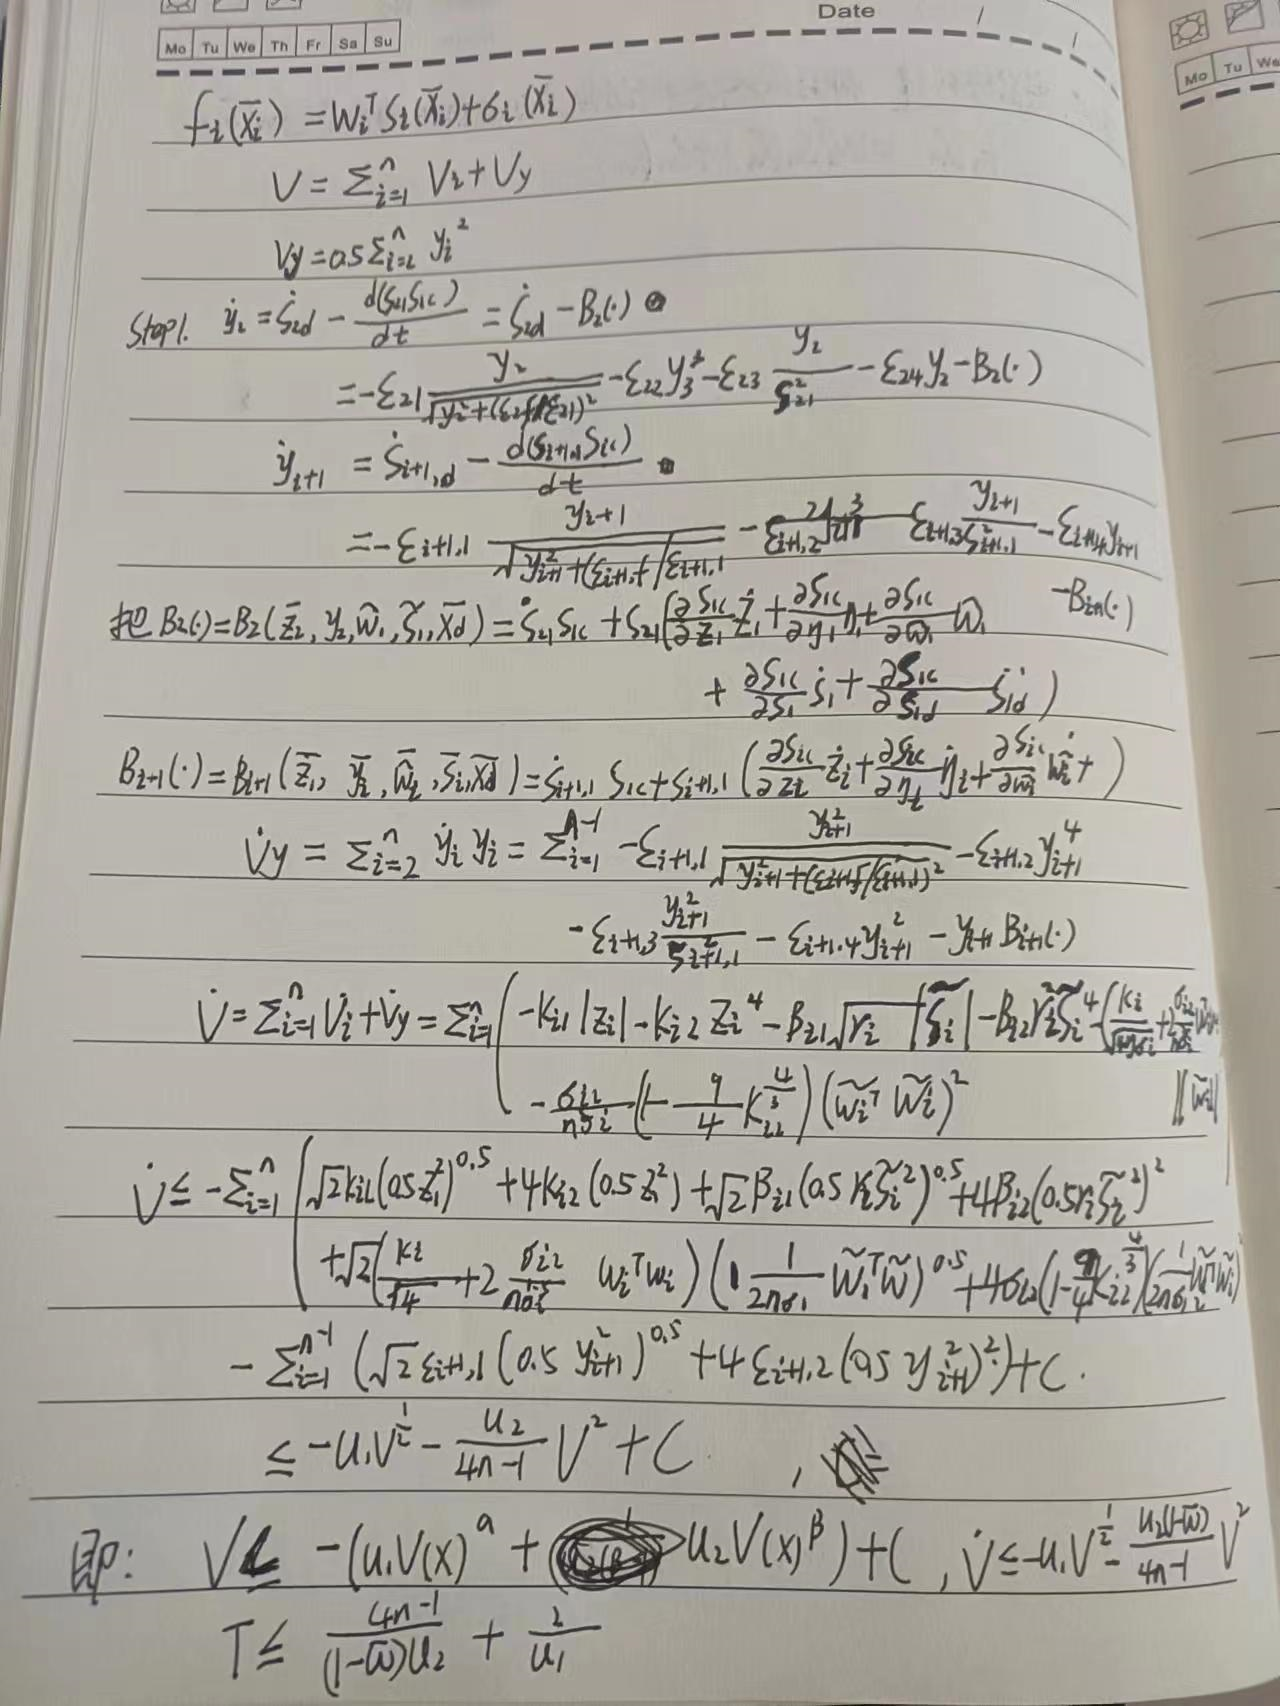 Date / /
Mo Tu We Th Fr Sa Su
Mo Tu We
f_i(x̄_i) = W_i^T S_i(x̄_i) + σ_i(x̄_i)
V = Σ_{i=1}^n V_i + V_y
V_y = 0.5 Σ_{i=2}^n y_i^2
Step1. ẏ_2 = ṡ_{2d} - d(s_{21}s_{1c})/dt = ṡ_{2d} - B_2(·)
= -ε_{21} y_2/√(y_2^2+(ε_{21})^2) - ε_{22}y_3^3 - ε_{23} y_2/ς_{21}^2 - ε_{24}y_2 - B_2(·)
ẏ_{i+1} = ṡ_{i+1,d} - d(s_{i+1,1}s_{ic})/dt
= -ε_{i+1,1} y_{i+1}/√(y_{i+1}^2+(ε_{i+1,1}/ε_{i+1,1} - ε_{i+1,3} y_{i+1}/ς_{i+1,1}^2 - ε_{i+1,4}y_{i+1}
-B_{i+1}(·)
把 B_2(·)=B_2(z̄_2, y_2, ŵ_1, ς̃_1, x̄_d) = ṡ_{21}s_{1c} + s_{21}(∂s_{1c}/∂z_1 ż_1 + ∂s_{1c}/∂η_1 η̇_1 + ∂s_{1c}/∂ŵ_1 ŵ_1
+ ∂s_{1c}/∂s_1 ṡ_1 + ∂s_{1c}/∂s_{1d} ṡ_{1d})
B_{i+1}(·) = B_{i+1}(z̄_1, ȳ_i, ŵ_i, s̄_i, x̄_d) = ṡ_{i+1,1} s_{ic} + s_{i+1,1}(∂s_{ic}/∂z_i ż_i + ∂s_{ic}/∂η_i η̇_i + ∂s_{ic}/∂ŵ_i ŵ_i +)
V̇_y = Σ_{i=2}^n ẏ_i y_i = Σ_{i=1}^{n-1} -ε_{i+1,1} y_{i+1}^2/√(y_{i+1}^2+(ε_{i+1,5}/ε_{i+1,1})^2) - ε_{i+1,2}y_{i+1}^4
- ε_{i+1,3} y_{i+1}^2/ς_{i+1,1}^2 - ε_{i+1,4}y_{i+1}^2 - y_{i+1}B_{i+1}(·)
V̇ = Σ_{i=1}^n V̇_i + V̇_y = Σ_{i=1}^n (-K_{i1}|z_i| - K_{i2}z_i^4 - β_{i1}√r_i |ς̃_i| - β_{i2}r_i^2 ς̃_i^4 -
- σ_{i2}/(nσ_i) (1 - 9/4 K_{22}^{4/3})(w̃_i^T w̃_i)^2 ||w̃_i||
V̇ ≤ -Σ_{i=1}^n (√2 K_{i1}(0.5z_1^2)^{0.5} + 4K_{i2}(0.5z_1^2) + √2 β_{i1}(0.5 r_i ς̃_i^2)^{0.5} + 4β_{i2}(0.5r_i ς̃_i^2)^2
+√2(K_i/√4 + 2 σ_{i2}/(nσ_i) w_i^T w_i)(1/(2nσ_1) w̃_1^T w̃)^{0.5} + 4σ_{i2}(1 - 9/4 K_{i2}^{4/3})(1/(2nσ_i) w̃^T w̃_i)^2
- Σ_{i=1}^{n-1} (√2 ε_{i+1,1}(0.5 y_{i+1}^2)^{0.5} + 4ε_{i+1,2}(0.5 y_{i+1}^2)^2) + C.
≤ -u_1V^{1/2} - u_2/(4n-1) V^2 + C ,
即: V ≤ -(u_1V(x)^a + u_2V(x)^β) + C , V̇ ≤ -u_1V^{1/2} - u_2(1-w̄)/(4n-1) V^2
T ≤ (4n-1)/((1-w̄)u_2) + 2/u_1